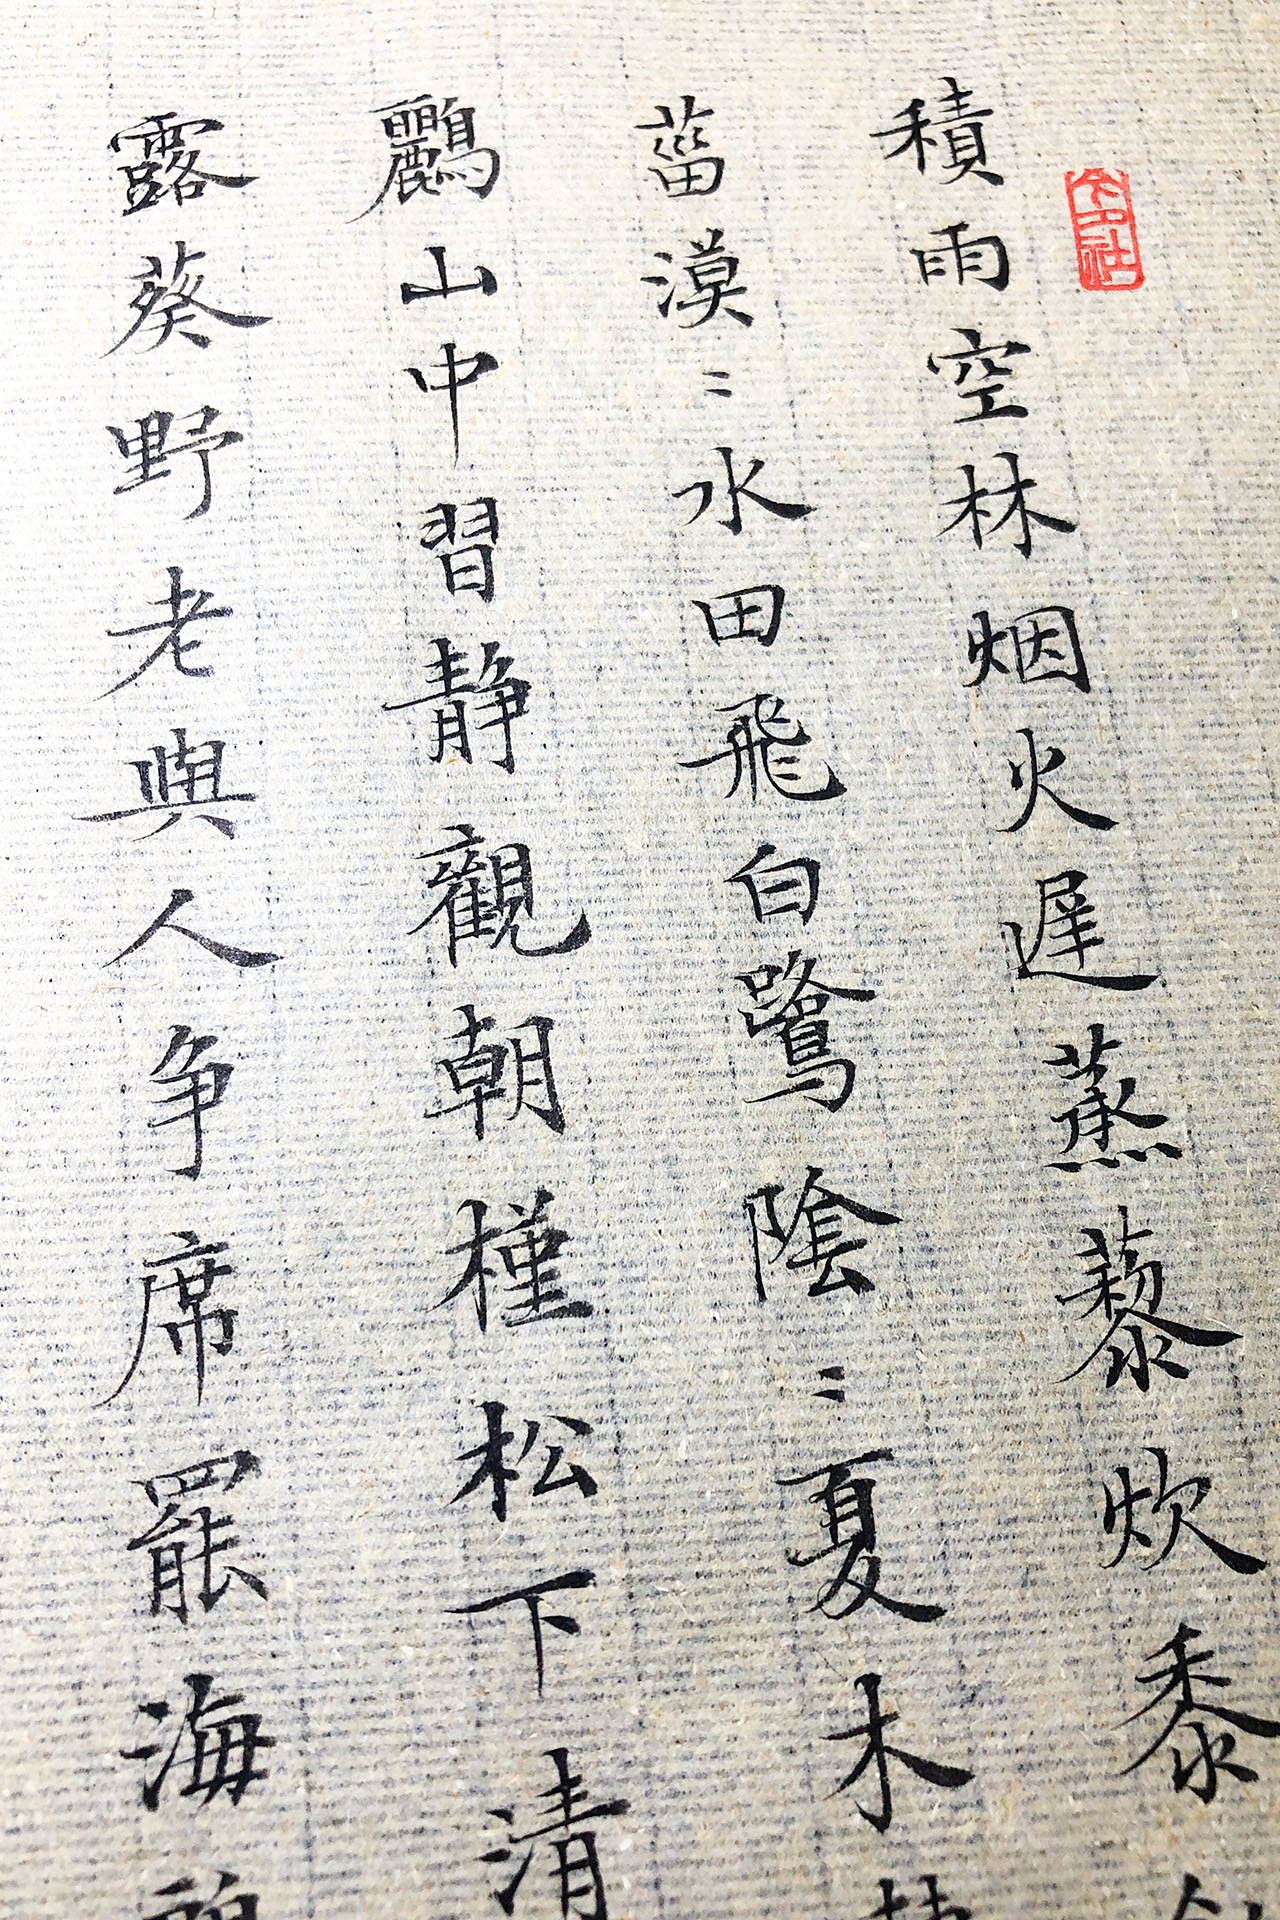 積雨空林烟火遲蒸藜炊黍
菑漠〻水田飛白鷺陰〻夏木
鸝山中習静觀朝槿松下清
露葵野老與人争席罷海